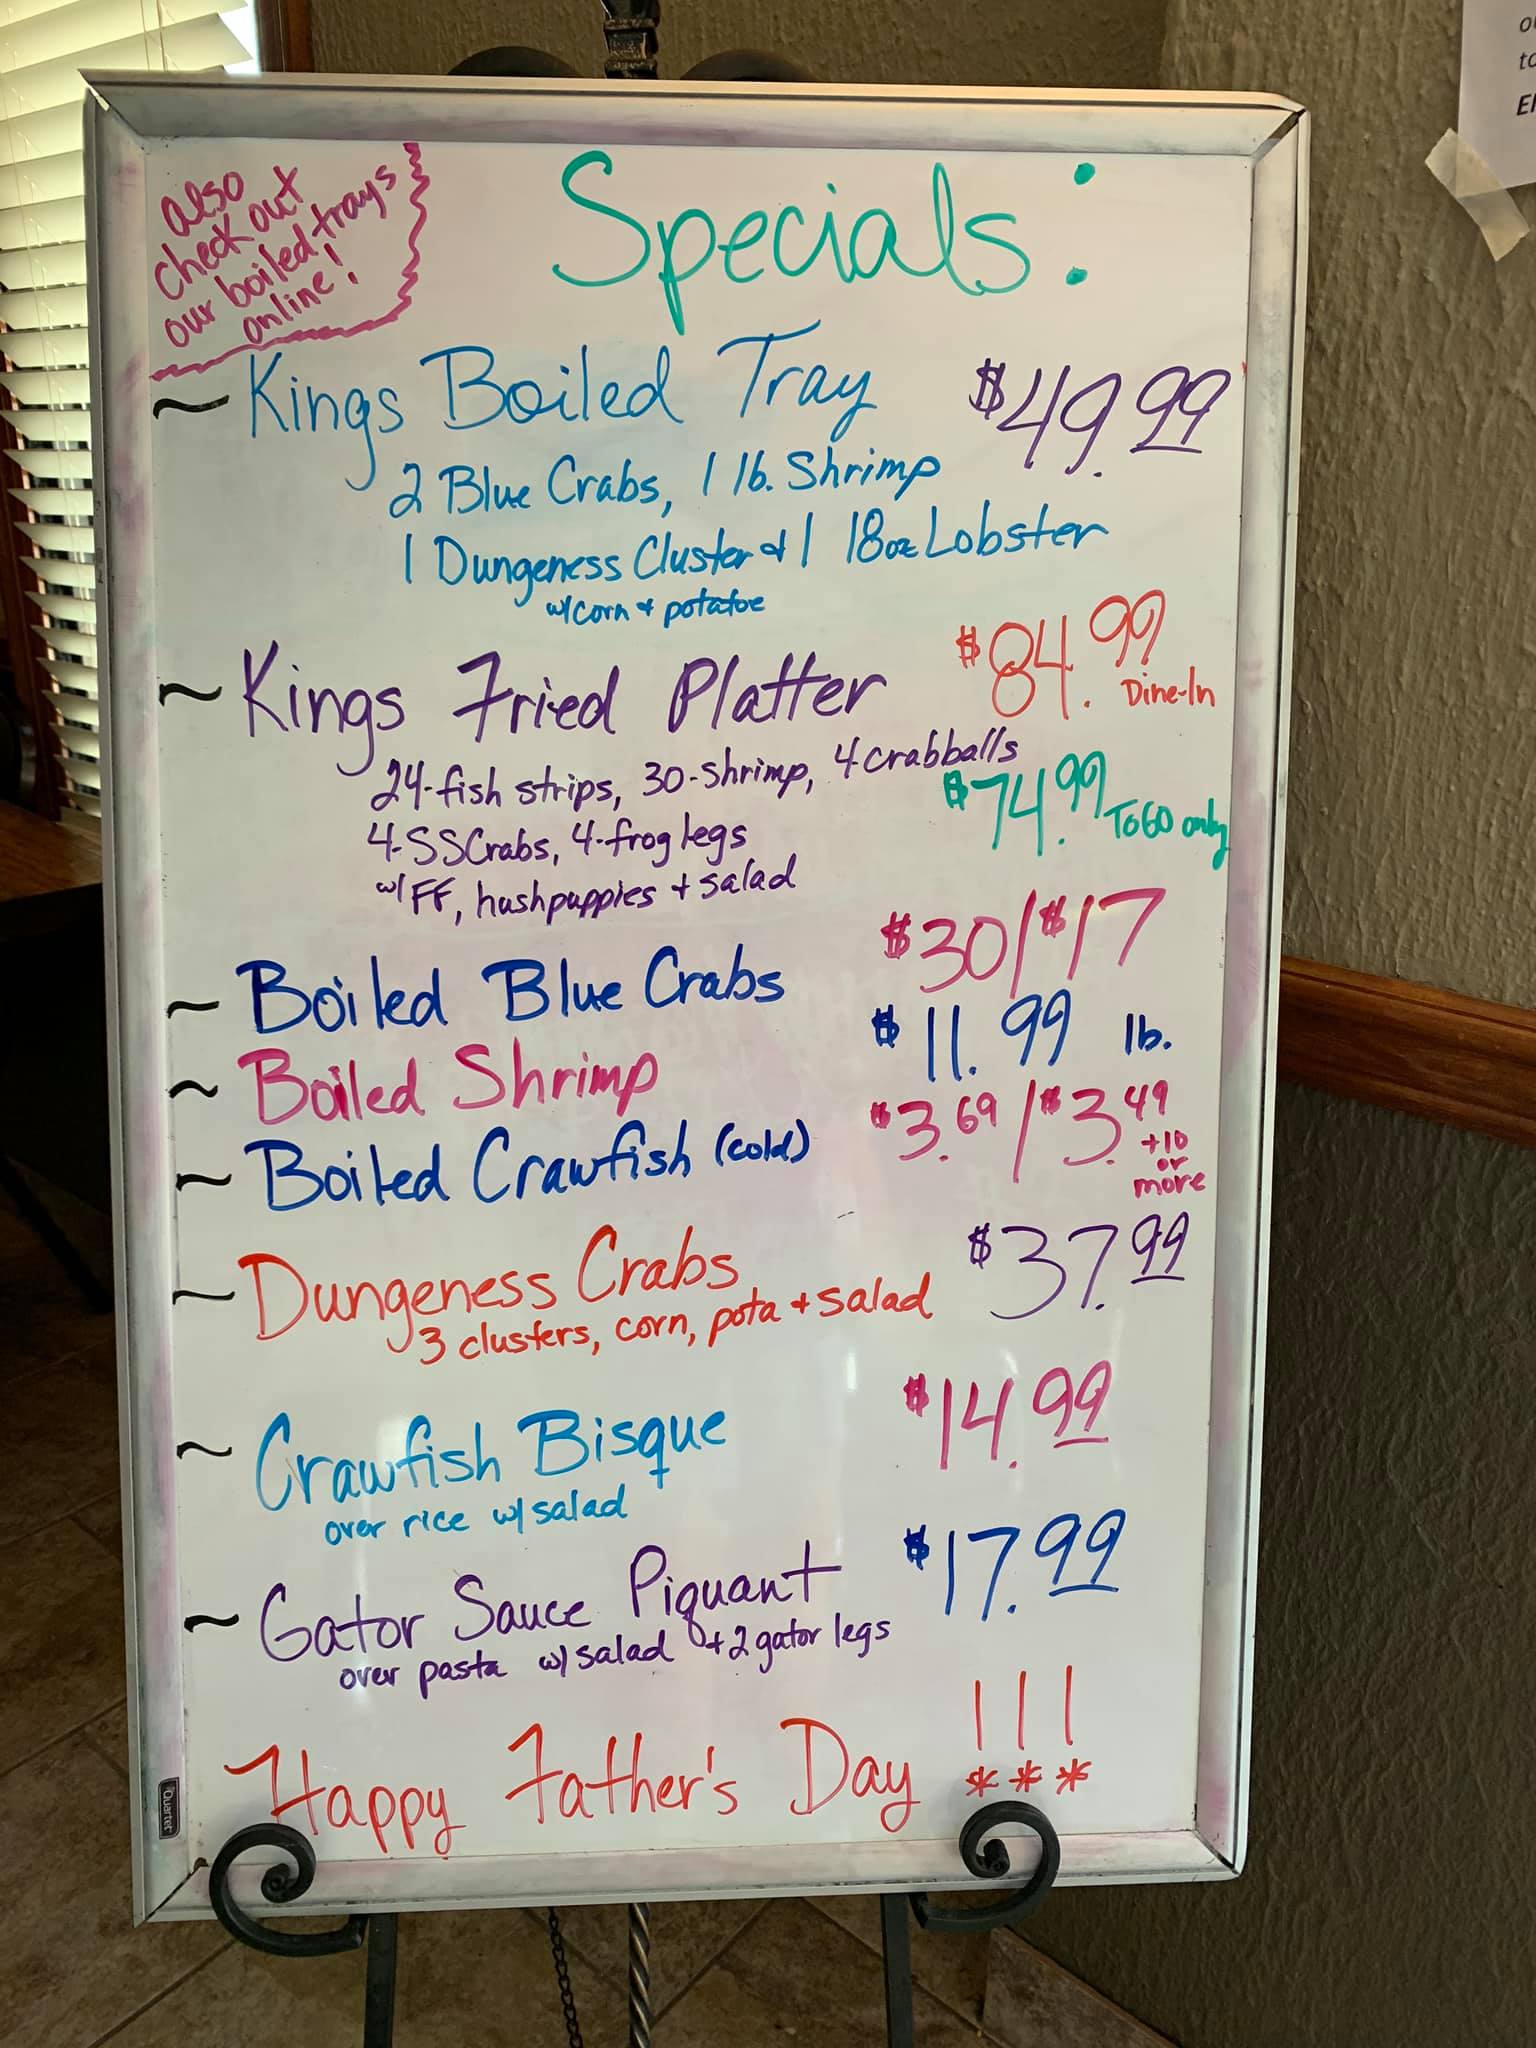 also
check out
our boiled trays
online!
Specials:
~ Kings Boiled Tray $49.99
2 Blue Crabs, 1 lb. Shrimp
1 Dungeness Cluster & 1 18oz Lobster
w/corn & potatoe
~ Kings Fried Platter $84.99 Dine-In
24-fish strips, 30-shrimp, 4 crabballs
$74.99 ToGO only
4-SSCrabs, 4-frog legs
w/ FF, hushpuppies + salad
~ Boiled Blue Crabs $30/$17
~ Boiled Shrimp $11.99 lb.
~ Boiled Crawfish (cold) $3.69/$3.49
+10
or
more
~ Dungeness Crabs $37.99
3 clusters, corn, pota + salad
~ Crawfish Bisque $14.99
over rice w/ salad
~ Gator Sauce Piquant $17.99
over pasta w/ salad +2 gator legs
Happy Father's Day !!!
Quartet